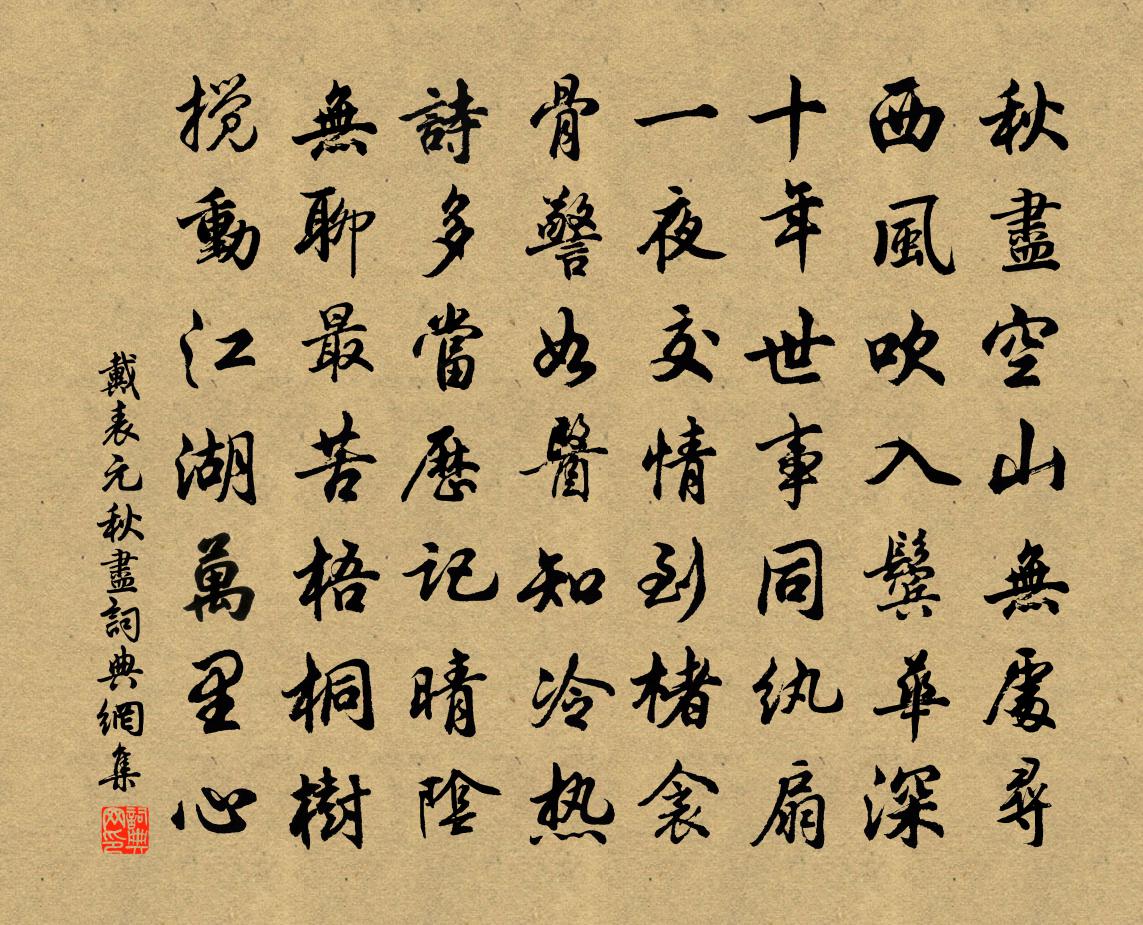 秋盡空山無處尋
西風吹入鬢華深
十年世事同紈扇
一夜交情到楮衾
骨警如醫知冷热
詩多當歷記晴陰
無聊最苦梧桐樹
搅動江湖萬里心
戴表元秋盡詞典網集
詞典网印